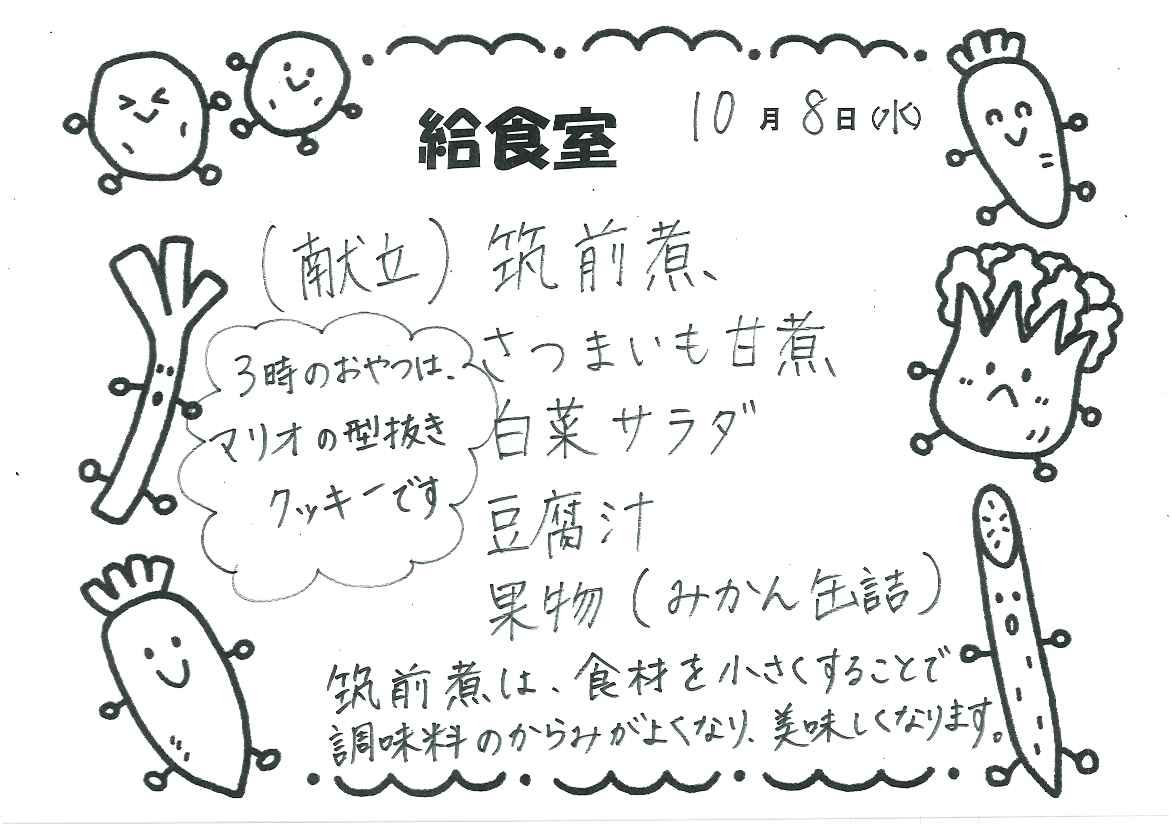 給食室
10月8日(水)
(献立) 筑前煮、
さつまいも甘煮、
白菜サラダ
豆腐汁
果物(みかん缶詰)
3時のおやつは、
マリオの型抜き
クッキーです
筑前煮は、食材を小さくすることで
調味料のからみがよくなり、美味しくなります。